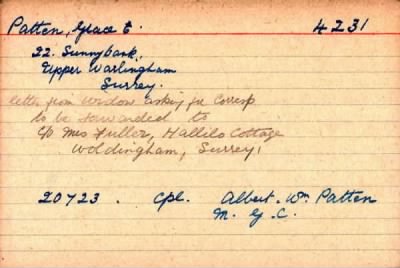 Patten, Grace E. 4231
22. Sunnybank,
Upper Warlingham
Surrey.
letter from widow asking for corresp
to be forwarded to
c/o Mrs Fuller, Hallilo Cottage
Woldingham, Surrey.
20723. Cpl. Albert. Wm Patten
M. G. C.